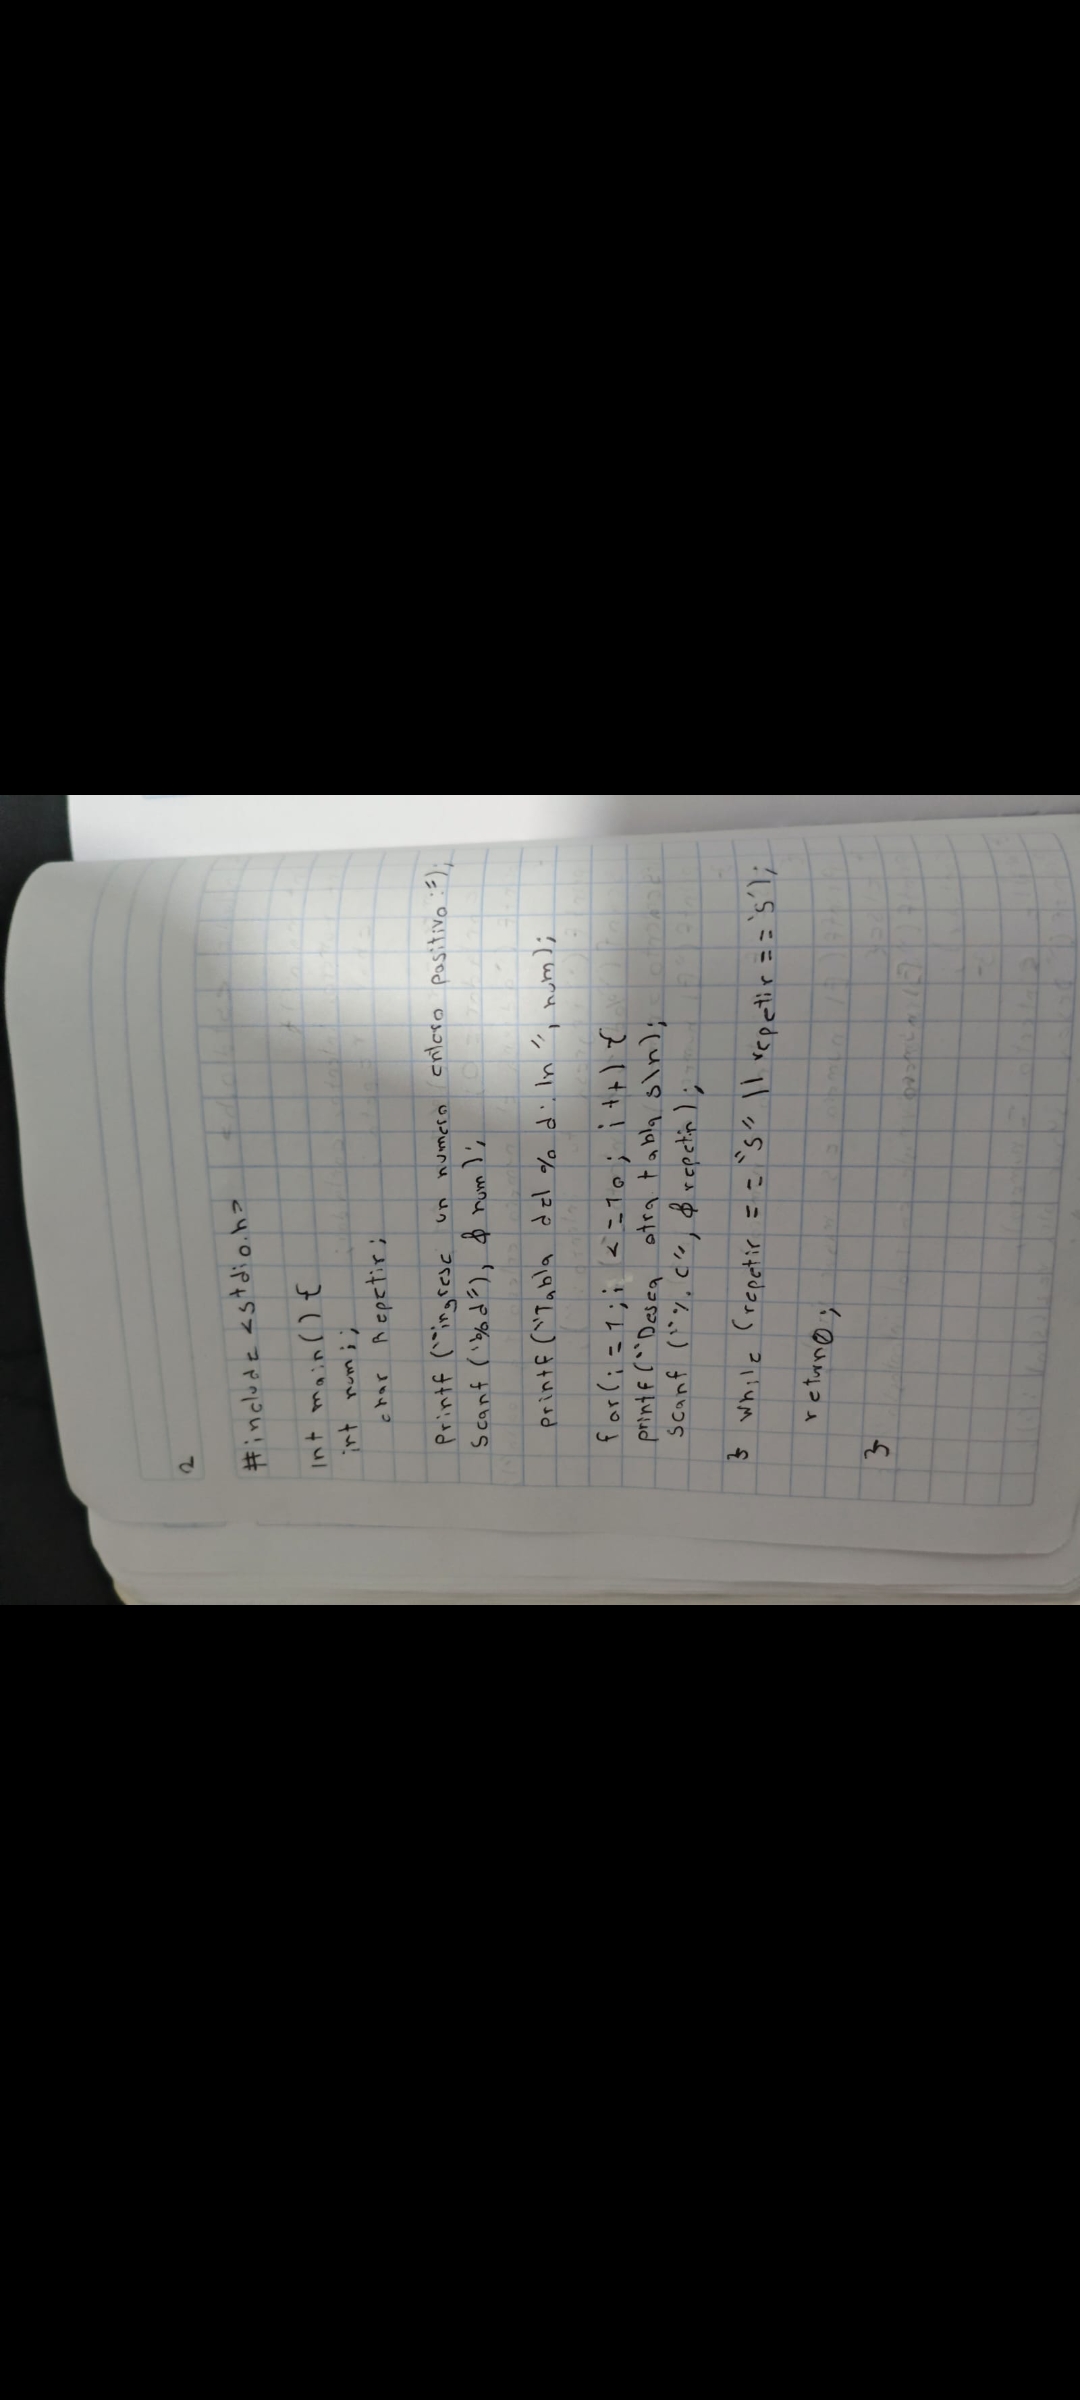 2
#include <stdio.h>
int main() {
int num;;
char Repetir;
printf ("ingrese un numero entero positivo:");
scanf ("%d"), & num);
printf ("Tabla del %d: \n", num);
for(i=1; i <=10; i++) {
printf("Desea otra tabla s\n);
scanf ("%c", & repetir);
} while (repetir == "s" || repetir == 's');
return 0;
}